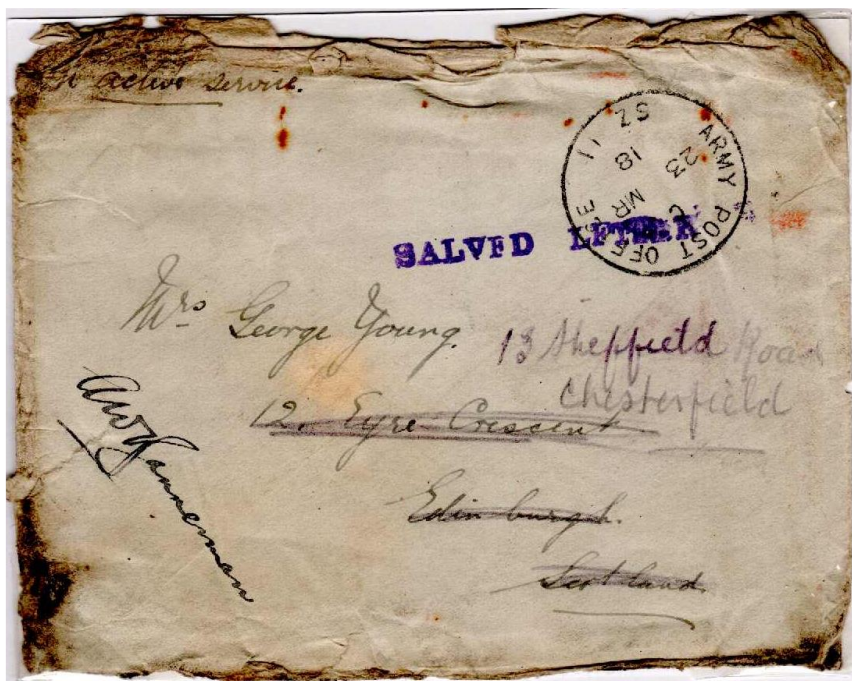 active service.
ARMY POST OFFICE
SZ 11
23 MR 18
SALVED LETTER
Mrs George Young.
13 Sheffield Road
Chesterfield
12, Eyre Crescent
Edinburgh.
Scotland.